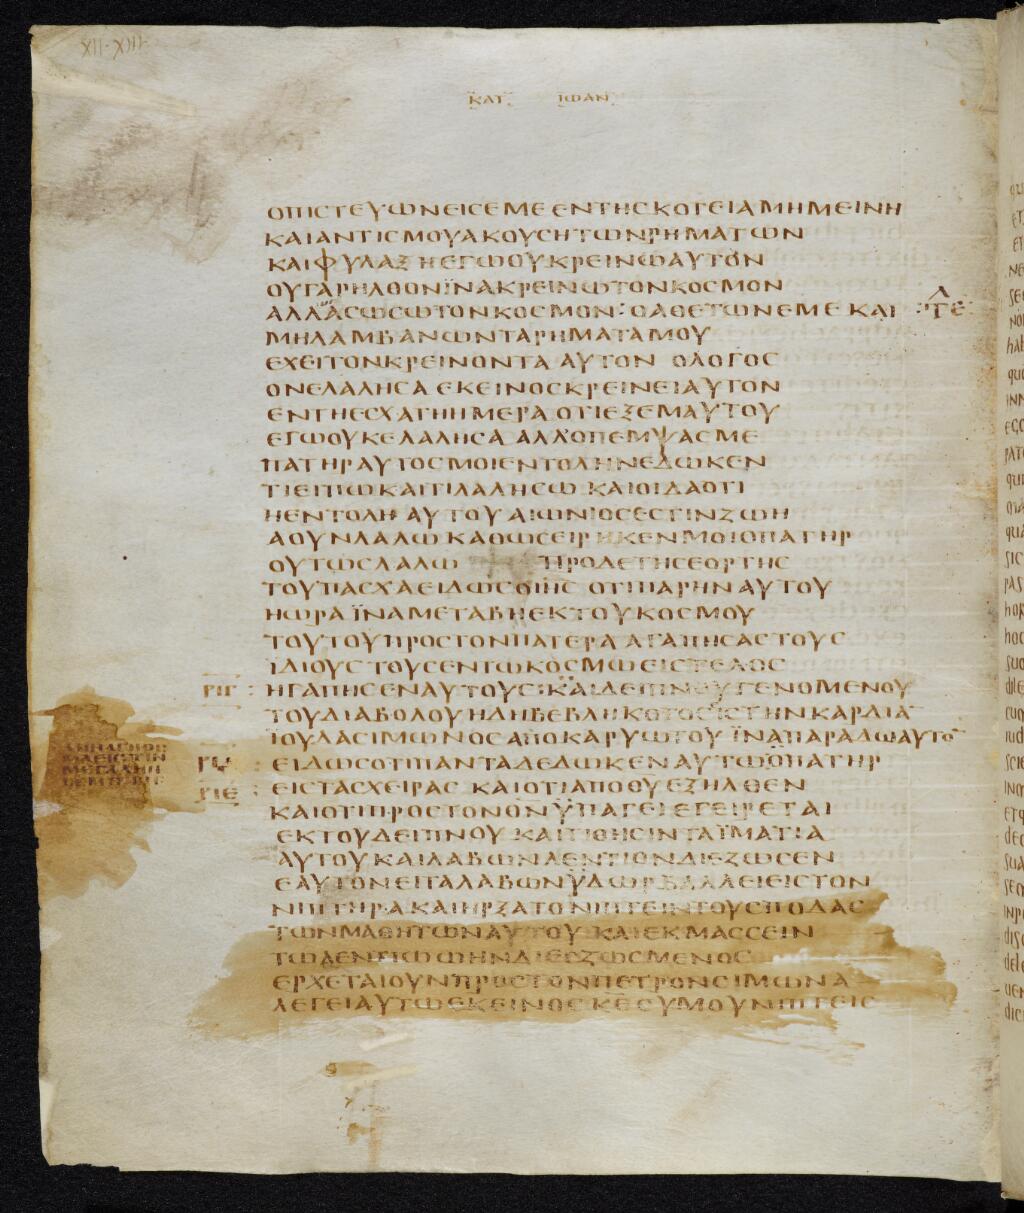 ΚΑΤ ΙΩΑΝ
ΟΠΙΣΤΕΥΩΝΕΙΣΕΜΕΕΝΤΗΣΚΟΤΕΙΑΜΗΜΕΙΝΗ
ΚΑΙΑΝΤΙΣΜΟΥΑΚΟΥΣΗΤΩΝΡΗΜΑΤΩΝ
ΚΑΙΦΥΛΑΞΗΕΓΩΟΥΚΡΕΙΝΩΑΥΤΟΝ
ΟΥΓΑΡΗΛΘΟΝΪΝΑΚΡΕΙΝΩΤΟΝΚΟΣΜΟΝ
ΑΛΛΑΣΩΣΩΤΟΝΚΟΣΜΟΝ ΟΑΘΕΤΩΝΕΜΕ ΚΑΙ
ΜΗΛΑΜΒΑΝΩΝΤΑΡΗΜΑΤΑΜΟΥ
ΕΧΕΙΤΟΝΚΡΕΙΝΟΝΤΑ ΑΥΤΟΝ ΟΛΟΓΟΣ
ΟΝΕΛΑΛΗΣΑ ΕΚΕΙΝΟΣΚΡΕΙΝΕΙΑΥΤΟΝ
ΕΝΤΗΕΣΧΑΤΗΗΜΕΡΑ ΟΤΙΕΞΕΜΑΥΤΟΥ
ΕΓΩΟΥΚΕΛΑΛΗΣΑ ΑΛΛΟΠΕΜΨΑΣΜΕ
ΠΑΤΗΡΑΥΤΟΣΜΟΙΕΝΤΟΛΗΝΕΔΩΚΕΝ
ΤΙΕΙΠΩΚΑΙΤΙΛΑΛΗΣΩ ΚΑΙΟΙΔΑΟΤΙ
ΗΕΝΤΟΛΗ ΑΥΤΟΥ ΑΙΩΝΙΟΣΕΣΤΙΝΖΩΗ
ΑΟΥΝΛΑΛΩ ΚΑΘΩΣΕΙΡΗΚΕΝΜΟΙΟΠΑΤΗΡ
ΟΥΤΩΣΛΑΛΩ ΠΡΟΔΕΤΗΣΕΟΡΤΗΣ
ΤΟΥΠΑΣΧΑΕΙΔΩΣΟΙΗΣ ΟΤΙΠΑΡΗΝΑΥΤΟΥ
ΗΩΡΑ ΪΝΑΜΕΤΑΒΗΕΚΤΟΥΚΟΣΜΟΥ
ΤΟΥΤΟΥΠΡΟΣΤΟΝΠΑΤΕΡΑ ΑΓΑΠΗΣΑΣΤΟΥΣ
ΪΔΙΟΥΣ ΤΟΥΣΕΝΤΩΚΟΣΜΩΕΙΣΤΕΛΟΣ
ΡΙΓ : ΗΓΑΠΗΣΕΝΑΥΤΟΥΣ:ΚΑΙΔΕΙΠΝΟΥΓΕΝΟΜΕΝΟΥ
ΤΟΥΔΙΑΒΟΛΟΥΗΔΗΒΕΒΛΗΚΟΤΟΣΙΣΤΗΝΚΑΡΔΙΑ
ΙΟΥΔΑΣΙΜΩΝΟΣΑΠΟΚΑΡΥΩΤΟΥ ΪΝΑΠΑΡΑΔΩΑΥΤΟ
ΕΙΔΩΣΟΤΙΠΑΝΤΑΔΕΔΩΚΕΝΑΥΤΩΟΠΑΤΗΡ
ΡΙΕ : ΕΙΣΤΑΣΧΕΙΡΑΣ ΚΑΙΟΤΙΑΠΟΘΥΕΞΗΛΘΕΝ
ΚΑΙΟΤΙΠΡΟΣΤΟΝΘΝΫΠΑΓΕΙΕΓΕΙΡΕΤΑΙ
ΕΚΤΟΥΔΕΙΠΝΟΥ ΚΑΙΤΙΘΗΣΙΝΤΑΪΜΑΤΙΑ
ΑΥΤΟΥΚΑΙΛΑΒΩΝΛΕΝΤΙΟΝΔΙΕΖΩΣΕΝ
ΕΑΥΤΟΝΕΙΤΑΛΑΒΩΝΫΔΩΡΒΑΛΛΕΙΕΙΣΤΟΝ
ΝΙΠΤΗΡΑΚΑΙΗΡΞΑΤΟΝΙΠΤΕΙΝΤΟΥΣΠΟΔΑΣ
ΤΩΝΜΑΘΗΤΩΝΑΥΤΟΥ ΚΑΙΕΚΜΑΣΣΕΙΝ
ΤΩΛΕΝΤΙΩΩΗΝΔΙΕΣΖΩΣΜΕΝΟΣ
ΕΡΧΕΤΑΙΟΥΝΠΡΟΣΤΟΝΠΕΤΡΟΝΣΙΜΩΝΑ
ΛΕΓΕΙΑΥΤΩΕΚΕΙΝΟΣΚΕΣΥΜΟΥΝΙΠΤΕΙΣ